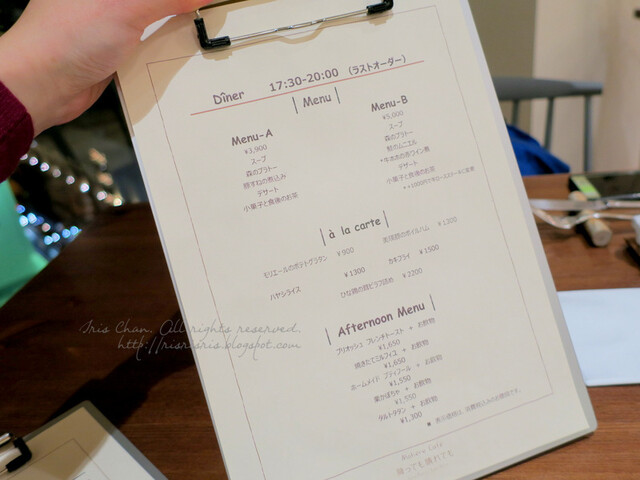 Dîner 17:30-20:00 (ラストオーダー)
Menu
Menu-A
¥3,900
スープ
森のプラトー
豚すねの煮込み
デザート
小菓子と食後のお茶
Menu-B
¥5,000
スープ
森のプラトー
鮭のムニエル
*牛ほほの赤ワイン煮
デザート
小菓子と食後のお茶
à la carte
モリエールのポテトグラタン ¥900
ボイルハム ¥1200
ハヤシライス ¥1300
カキフライ ¥1500
ひな鶏の間ピラフ詰め ¥2200
Afternoon Menu
ブリオッシュ フレンチトースト + お飲物
¥1,650
焼きたてミルフィユ + お飲物
¥1,650
ホームメイド プティフール + お飲物
¥1,550
栗かぼちゃ + お飲物
¥1,550
タルトタタン + お飲物
¥1,300
降っても晴れても
Iris Chan. All rights reserved.
http://risrisris.blogspot.com